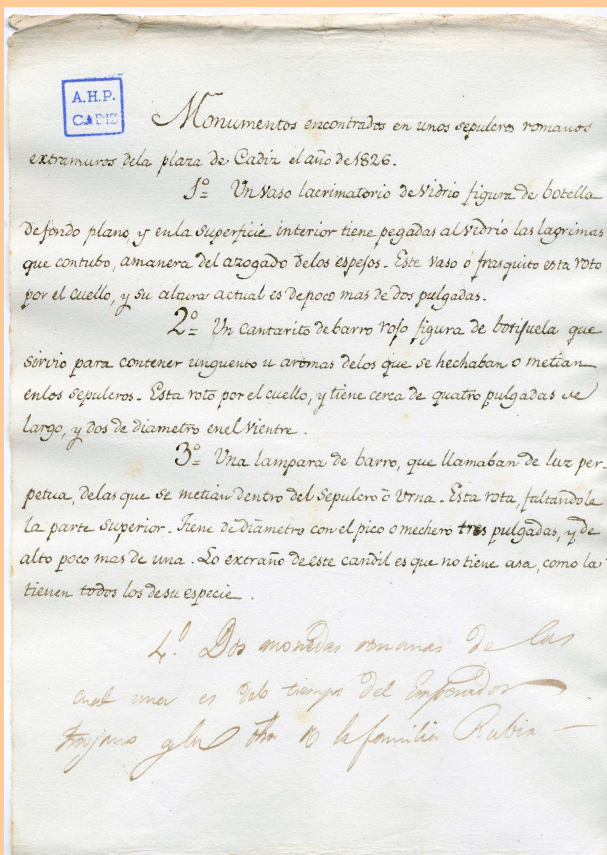 A.H.P.
CADIZ
Monumentos encontrados en unos sepulcros romanos
extramuros dela plaza de Cadiz el año de 1826.
1º= Un vaso lacrimatorio de vidrio figura de botella
de fondo plano, y enla superficie interior tiene pegadas al vidrio las lagrimas
que contubo, amanera del azogado delos espejos. Este vaso ó frasquito esta roto
por el cuello, y su altura actual es de poco mas de dos pulgadas.
2º= Un cantarito de barro rojo figura de botijuela que
sirvio para contener unguento u aromas delos que se hechaban o metian
enlos sepulcros. Esta roto por el cuello, y tiene cerca de quatro pulgadas de
largo, y dos de diametro enel vientre.
3º= Una lampara de barro, que llamaban de luz per-
petua, delas que se metian dentro del sepulcro ó urna. Esta rota, faltandole
la parte superior. Tiene de diametro con el pico o mechero tres pulgadas, y de
alto poco mas de una. Lo extraño de este candil es que no tiene asa, como la
tienen todos los de su especie.
4.º Dos monedas romanas de las
cual una es del tiempo del Emperador
Trajano y la otra de la familia Rubia